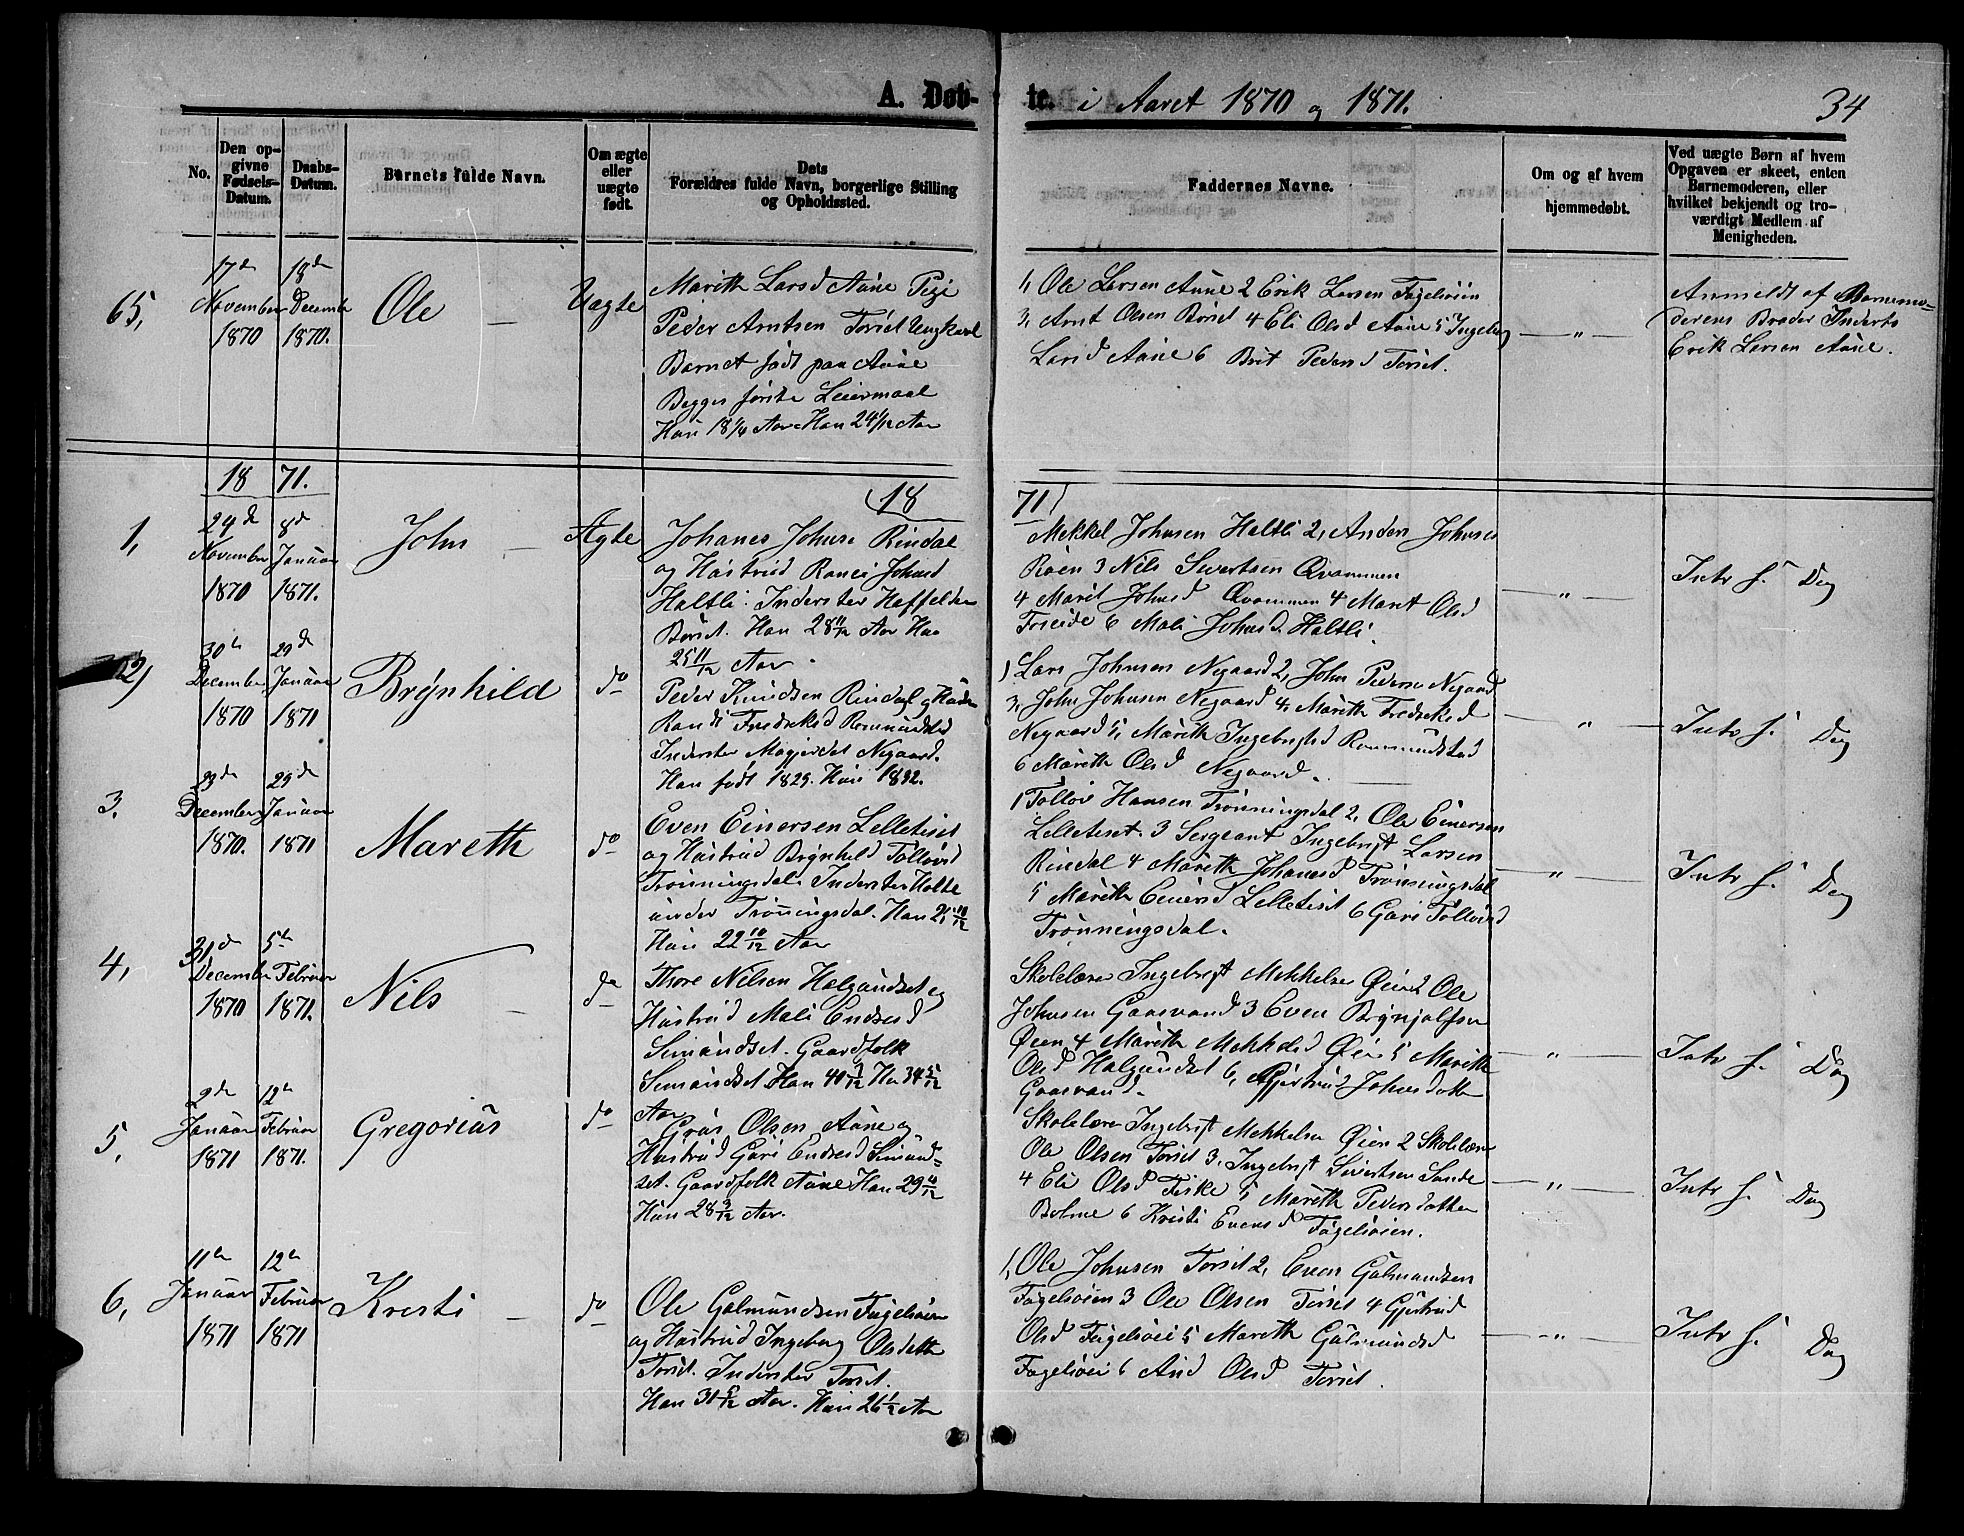 A. Døb-
te. i Aaret 1870 og 1871.
34
No.
Den op-
givne
Fødsels-
Datum.
Daabs-
Datum.
Barnets fulde Navn.
Om ægte
eller
uægte
født.
Dets
Forældres fulde Navn, borgerlige Stilling
og Opholdssted.
Faddernes Navne.
Om og af hvem
hjemmedøbt.
Ved uægte Børn af hvem
Opgaven er skeet, enten
Barnemoderen, eller
hvilket bekjendt og tro-
værdigt Medlem af
Menigheden.
65,
17de
November
1870
18de
December
1870.
Ole
Uægte
Marith Larsd Aune Pige
Peder Arntsen Torset Ungkarl
Barnet født paa Aune
Begges første Leiermaal
Hun 18 1/4 Aar Han 24 1/12 Aar
1, Ole Larsen Aune 2 Erik Larsen Fugelsøien
3, Arnt Olsen Børset 4 Eli Olsd Aune 5 Ingeborg
Larsd Aune 6 Brit Pedersd Torset.
— " —
Anmeldt af Barnemo-
derens Broder Inderst
Erik Larsen Aune.
1871.
(1871)
1,
24de
November
1870
8de
Januar
1871.
John
Ægte
Johanes Johnse Rindal
og Hustrud Ranei Johnsd
Haltli. Inderster Heffelden
Børset. Han 28 11/12 Aar Hun
25 11/12 Aar.
Mekkel Johnsen Haltli 2, Anders Johnsen
Røen 3 Nils Sivertsen Qvammen
4 Marit Johnsd Qvammen 4 Maret Olsd
Troeide 6 Mali Johnsd. Haltli.
— " —
Intr f. Dag
2)
30te
December
1870
29de
Januar
1871
Brynhild
do
Peder Knudsen Rindal og Hustru
Randi Fredreksd Romundstad
Inderster Mogjerdet Negaard.
Han født 1829. Hun 1832.
1, Lars Johnsen Negaard 2, John Pederse Negaard
3, John Johnsen Negaard 4, Marith Fredreksd
Negaard 5, Marith Ingebrigtsd Romundstad
6 Marith Olsd Negaard.
— " —
Intr f. Dag
3.
23de
December
1870.
29de
Januar
1871
Mareth
do
Even Einersen Lelletiset
og Hustrud Brynhild Tollovsd
Trønningsdal. Inderster Holte
under Trønningsdal. Han 25 10/12
Hun 22 10/12 Aar
1 Tollov Hansen Trønningsdal 2, Ole Einersen
Lelletiset. 3 Sergeant Ingebrigt Larsen
Rindal 4 Mareth Johanesd Trønningsdal
5 Marith Einersd Lelletiset 6 Guri Tollovsd
Trønningsdal.
— " —
Intr f. Dag
4,
31de
December
1870
5te
Februar
1871.
Nils
do
Thore Nilsen Halgundset og
Hustrud Mali Endresd
Simundset. Gaardfolk
Simundset. Han 40 3/12 Hun 34 5/12
Aar
Skolelærer Ingebrigt Mekkelsen Øien 2 Ole
Johnsen Gaasvand 3 Even Brynjolfsen
Øien 4 Mareth Mekkelsd Øien 5 Marith
Olsd Halgundset 6, Gjertrud Johnsdatter
Gaasvand.
— " —
Intr f. Dag
5,
2de
Januar
1871
12te
Februar
1871.
Gregorius
do
Olsen Aune og
Hustrud Guri Endresd Simund-
set. Gaardfolk Aune Han 29 4/12
Hun 28 3/12 Aar.
Skolelærer Ingebrigt Mekkelsen Øien 2 Skolelærer
Ole Olsen Torset 3, Ingebrigt Sivertsen Lande
4 Eli Olsd Fiske 5 Mareth Pedersdatter
Bolme 6 Kristi Evensd Fugelsøien.
— " —
Intr f. Dag
6,
11te
Januar
1871
12te
Februar
1871
Kresti
do
Ole Galmundsen Fugelsøien
og Hustrud Ingeborg Olsdatter
Torset. Inderster Torset.
Han 31 5/12 Aar. Hun 26 1/12 Aar
1, Ole Johnsen Torset 2, Even Galmundsen
Fugelsøien 3 Ole Olsen Torset 4 Gjertrud
Olsd Fugelsøien 5 Mareth Galmundsd
Fugelsøien 6 Aud Olsd Torset.
— " —
Intr f. Dag